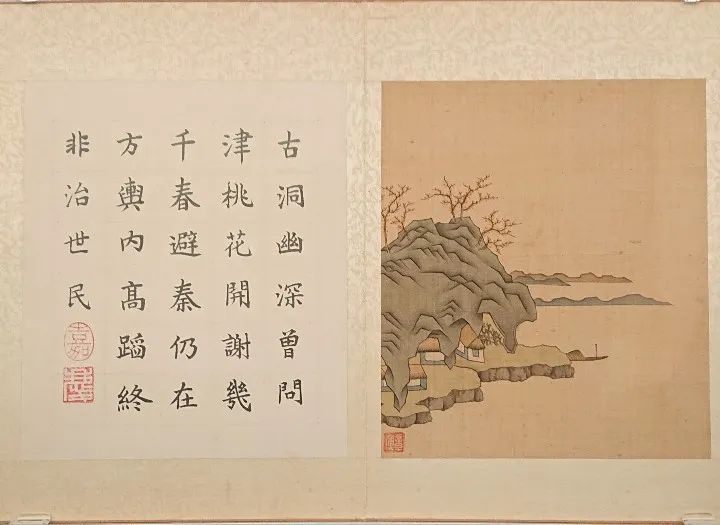 古洞幽深曾問
津桃花開謝幾
千春避秦仍在
方輿內高蹈終
非治世民